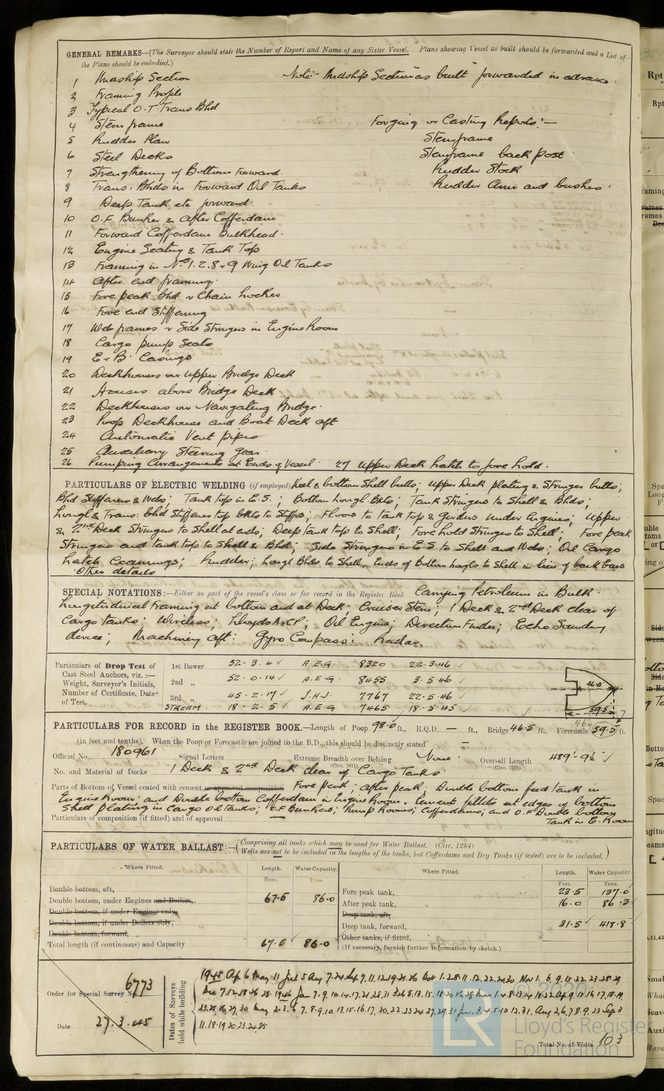 GENERAL REMARKS—(The Surveyor should state the Number of Report and Name of any Sister Vessel. Plans showing Vessel as built should be forwarded and a List of
the Plans should be embodied.)
1 Midship Section Note:- Midship Section "as built" forwarded in advance.
2 Framing Profile
3 Typical O.T Trans Bhd
4 Sternframe Forging or Casting Reports:—
5 Rudder Plan Sternframe
6 Steel Decks Sternframe back post
7 Strengthening of Bottom Forward Rudder Stock
8 Trans. Bhds in Forward Oil Tanks Rudder Arm and bushes.
9 Deep Tank etc forward
10 O.F. Bunker & after Cofferdam
11 Forward Cofferdam Bulkhead.
12 Engine Seating & Tank Top
13 Framing in Nos 1.2.8 & 9 Wing Oil Tanks
14 After end framing.
15 Fore peak Bhd & Chain Locker
16 Fore end Stiffening
17 Web frames & Side Stringers in Engine Room
18 Cargo pump Seats
19 E & B. Casings
20 Deckhouses on Upper Bridge Deck
21 Houses above Bridge Deck
22 Deckhouses on Navigating Bridge.
23 Poop Deckhouse and Boat Deck aft
24 Automatic Vent pipes
25 Auxiliary Steering gear
26 Pumping Arrangements at Ends of Vessel. 27 Upper Deck hatch to fore hold.
PARTICULARS OF ELECTRIC WELDING (if employed) Keel & bottom Shell butts; Upper Deck plating & Stringer butts;
Bhd Stiffeners & Webs; Tank top in E.S.; Bottom Longl Bkts; Tank Stringers to Shell & Bhds;
Longl & Trans: Bhd stiffeners top bkts to Stiffrs; Floors to Tank top & Girders under Engines; Upper
& 2nd Deck Stringers to Shell at ends; Deep tank top to Shell; Fore hold Stringers to Shell; Fore peak
Stringers and tank top to Shell & Bhd; Side Stringers in E.S to Shell and Webs; Oil Cargo
hatch Coamings; Rudder; Longl Bhds to Shell, Ends of Bottom longls to Shell in lieu of back bars
Other details
SPECIAL NOTATIONS:—Either as part of the vessel's class or for record in the Register Book Carrying Petroleum in Bulk.
Longitudinal Framing at bottom and at Deck. Cruiser Stern; 1 Deck & 2nd Deck clear of
Cargo tanks; Wireless; Lloyds A & C P; Oil Engine; Direction Finder; Echo Sounding
device; Machinery Aft; Gyro Compass; Radar.
Particulars of Drop Test of 1st Bower 52.3.4 A.E.G 8320 22.3.46
Cast Steel Anchors, viz.:— 2nd „ 52.0.14 A.E.G. 8455 3.5.46
Weight, Surveyor's Initials,
Number of Certificate, Date 3rd „ 45.2.17 J.H.J. 7767 22.5.46
of Test. STREAM. 18.2.5 A.E.G 7465 18.5.45
PARTICULARS FOR RECORD in the REGISTER BOOK.—Length of Poop 98.0 ft., R.Q.D. — ft., Bridge 46.5 ft., Forecastle 59.5 ft.
(in feet and tenths). When the Poop or Forecastle are joined to the B.D., this should be distinctly stated —
Official No. 180961 Signal Letters Extreme Breadth over Belting None Over-all Length 489'-9½"
No. and Material of Decks 1 Deck & 2nd Deck clear of Cargo Tanks.
Parts of Bottom of Vessel coated with cement or approved composition Fore peak, after peak, Double bottom feed tank in
Engine Room and Double bottom Cofferdam in Engine Room. Cement fillets at edges of bottom
Shell plating in Cargo Oil Tanks; O.F Bunkers; Pump Rooms, Cofferdams; and O.F Double bottom
Particulars of composition (if fitted) and of approval — Tank in E. Room
PARTICULARS OF WATER BALLAST:—(Comprising all tanks which may be used for Water Ballast. (Circ. 1284)
Wells are not to be included in the lengths of the tanks, but Cofferdams and Dry Tanks (if tested) are to be included.)
Where Fitted. Length. Water Capacity. Where Fitted. Length. Water Capacity.
Feet. Tons. Feet. Tons.
Double bottom, aft, Fore peak tank, 23.5 137.0
Double bottom, under Engines and Boilers, 67.5 86.0 After peak tank, 16.0
Double bottom, if under Engines only, Deep tank, aft,
Double bottom, if under Boilers only, Deep tank, forward, 31.5 418.8
Double bottom, forward, Other tanks, if fitted,
Total length (if continuous) and Capacity 67.5 86.0 (If necessary, furnish further information by sketch.)
Order for Special Survey No. 6773
Date 27.3.45
Dates of Surveys held while building
Total No. of Visits 103
LR © 2020
Lloyd's Register
Foundation